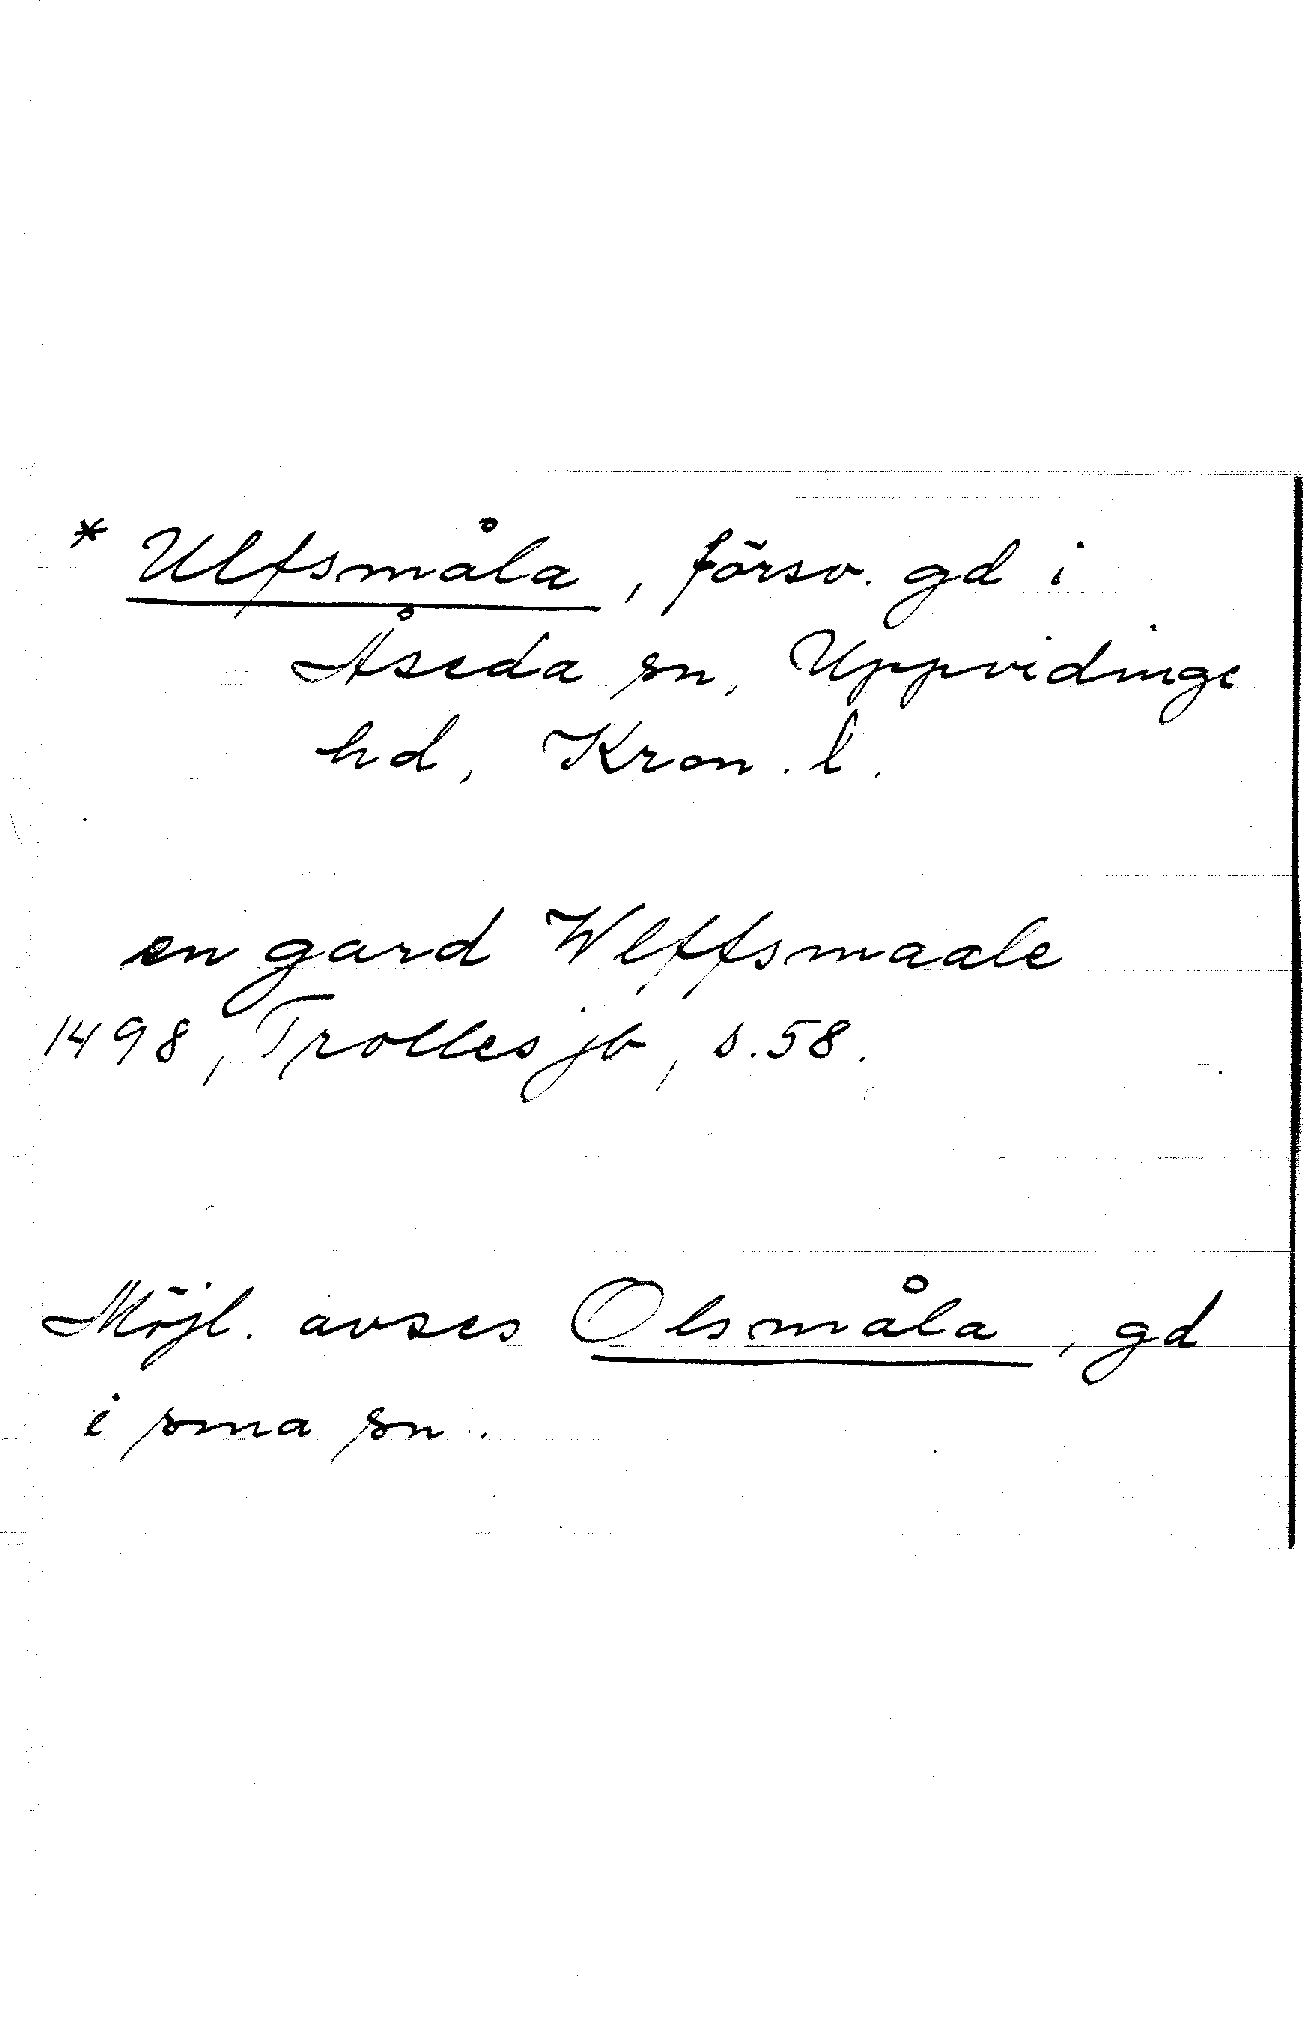 * Ulfsmåla, försv. gd i
Åseda sn, Uppvidinge
hd, Kron. l.
en gard Wlffsmaale
1498, Trolles jb, s. 58.
Möjl. avses Olsmåla, gd
i sma sn.